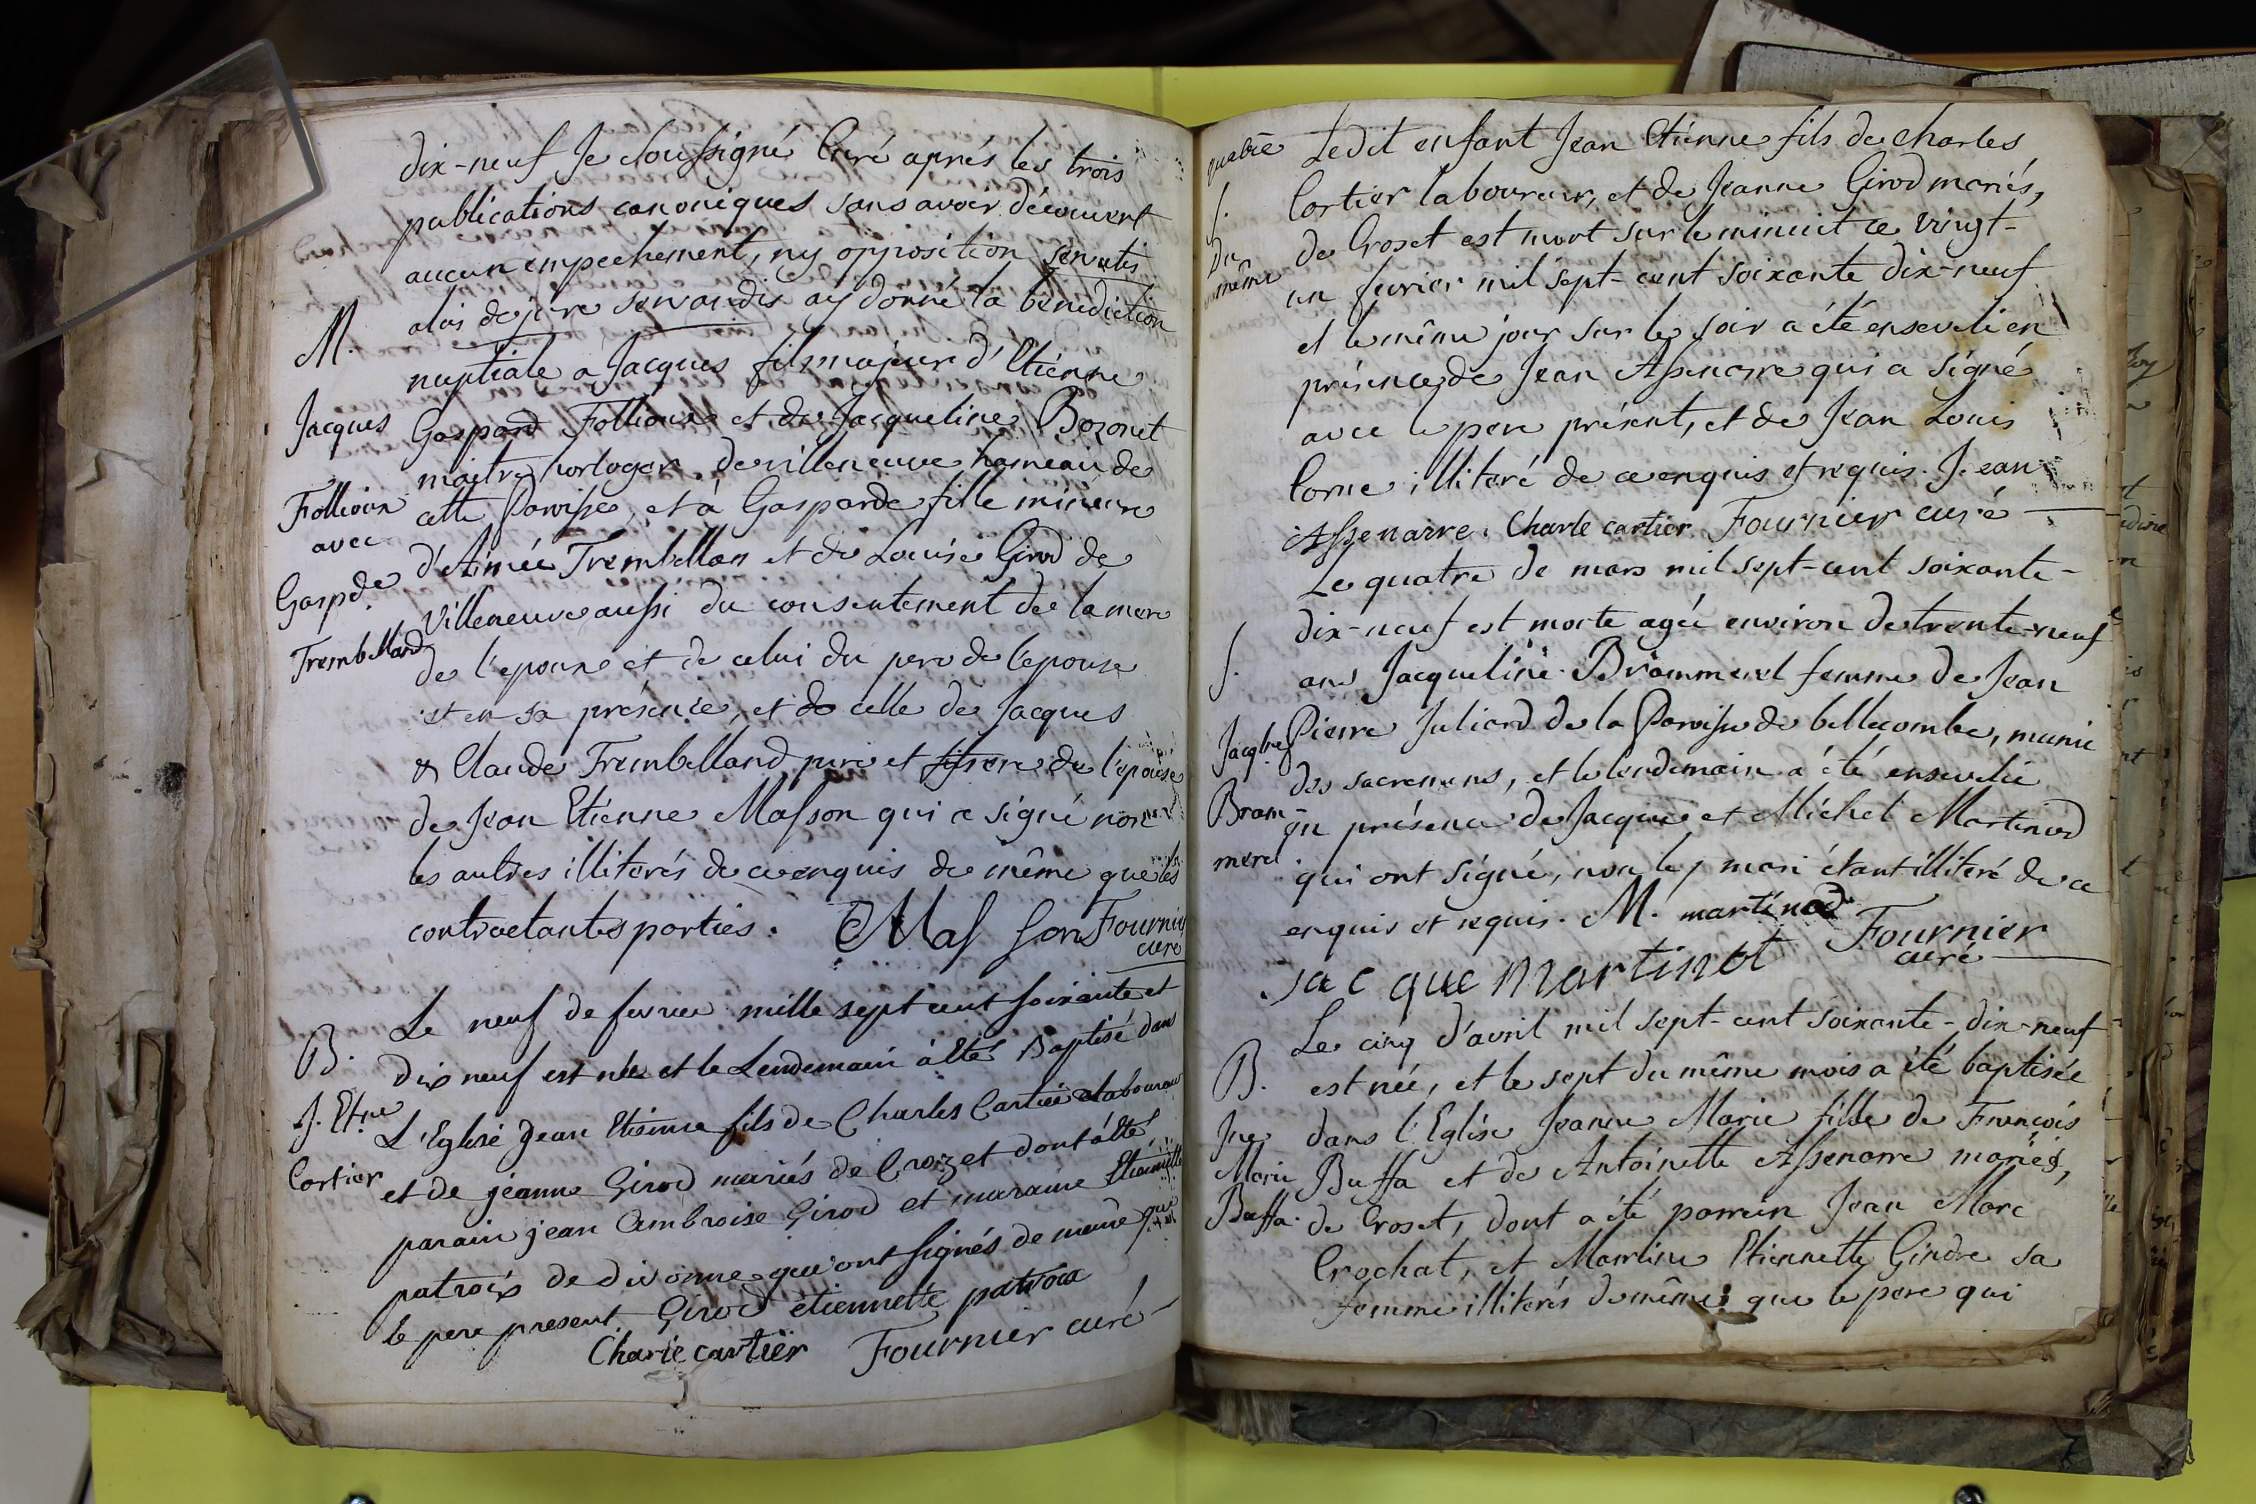 dix-neuf Je soussigné Curé aprés les trois
publications canoniques sans avoir découvert
aucun empechement, ny opposition servatis
aliis de jure servandis ay donné la bénédiction
M.
nuptiale a Jacques fils majeur d'Etienne
Jacques
Gaspard Follioux et de Jacqueline Bozonet
maitre horloger de villeneuve hameau de
Follioux
cette Paroisse, et à Gasparde fille mineure
avec
d'Aimée Tremblllan et de Louise Girod de
Gaspde
Villeneuve aussi du consentement de la mere
Trembelland
de l'epoux et de celui du pere de l'epouse
et en sa présence, et de celle de Jacques
& Claude Trembelland pere et frere de l'epouse
de Jean Etienne Masson qui a signé non
les autres illiterés de ce enquis de même que les
contractantes parties. Masson Fournier
curé
Le neuf de fevrier mille sept cent soixante et
B.
dix neuf est née et le Lendemain à Eté Baptisé dans
J. Etne
L'Eglise Jean Etienne fils de Charles Cartier laboureur
Cortier
et de jeanne Girod mariés de Croizet dont à Eté
parain jean Ambroise Girod et maraine Etiennette
patrois de divonne qui ont signés de meme que
le pere present Girod etiennette patroix
Charle cartier Fournier curé
quatre
Ledit enfant Jean Etienne fils de Charles
Cortier laboureur, et de Jeanne Girod mariés,
f.
de Croset est mort sur le minuit ce vingt-
Du
même
un fevrier mil sept-cent soixante dix-neuf
et le même jour sur le soir a été enseveli en
présence de Jean Assenarre qui a signé
avec le pere présent, et de Jean Louis
Corne illiteré de ce enquis et requis. Jean
Assenarre. Charle cartier Fournier curé
Le quatre de mars mil sept-cent soixante-
dix-neuf est morte agée environ de trente-neuf
f.
ans Jacqueline Brammerel femme de Jean
Jacqlne
Pierre Juliard de la Paroisse de bellecombe, munie
des sacremens, et le lendemain a été ensevelie
Bram-
en présence de Jacque et Michel Martinod
merel
qui ont signé, non le mari étant illiteré de ce
enquis et requis. M. martinod Fournier
curé
jacque martinot
Le cinq d'avril mil sept-cent soixante-dix-neuf
B.
est née, et le sept du même mois a été baptisée
Jne
dans l'Eglise Jeanne Marie fille de François
Marie
Buffa et de Antoinette Assenarre mariés,
Buffa.
de Croset, dont a été parrain Jean Marc
Crochat, et Marrine Etiennette Gindre sa
femme illiterés de même que le pere qui